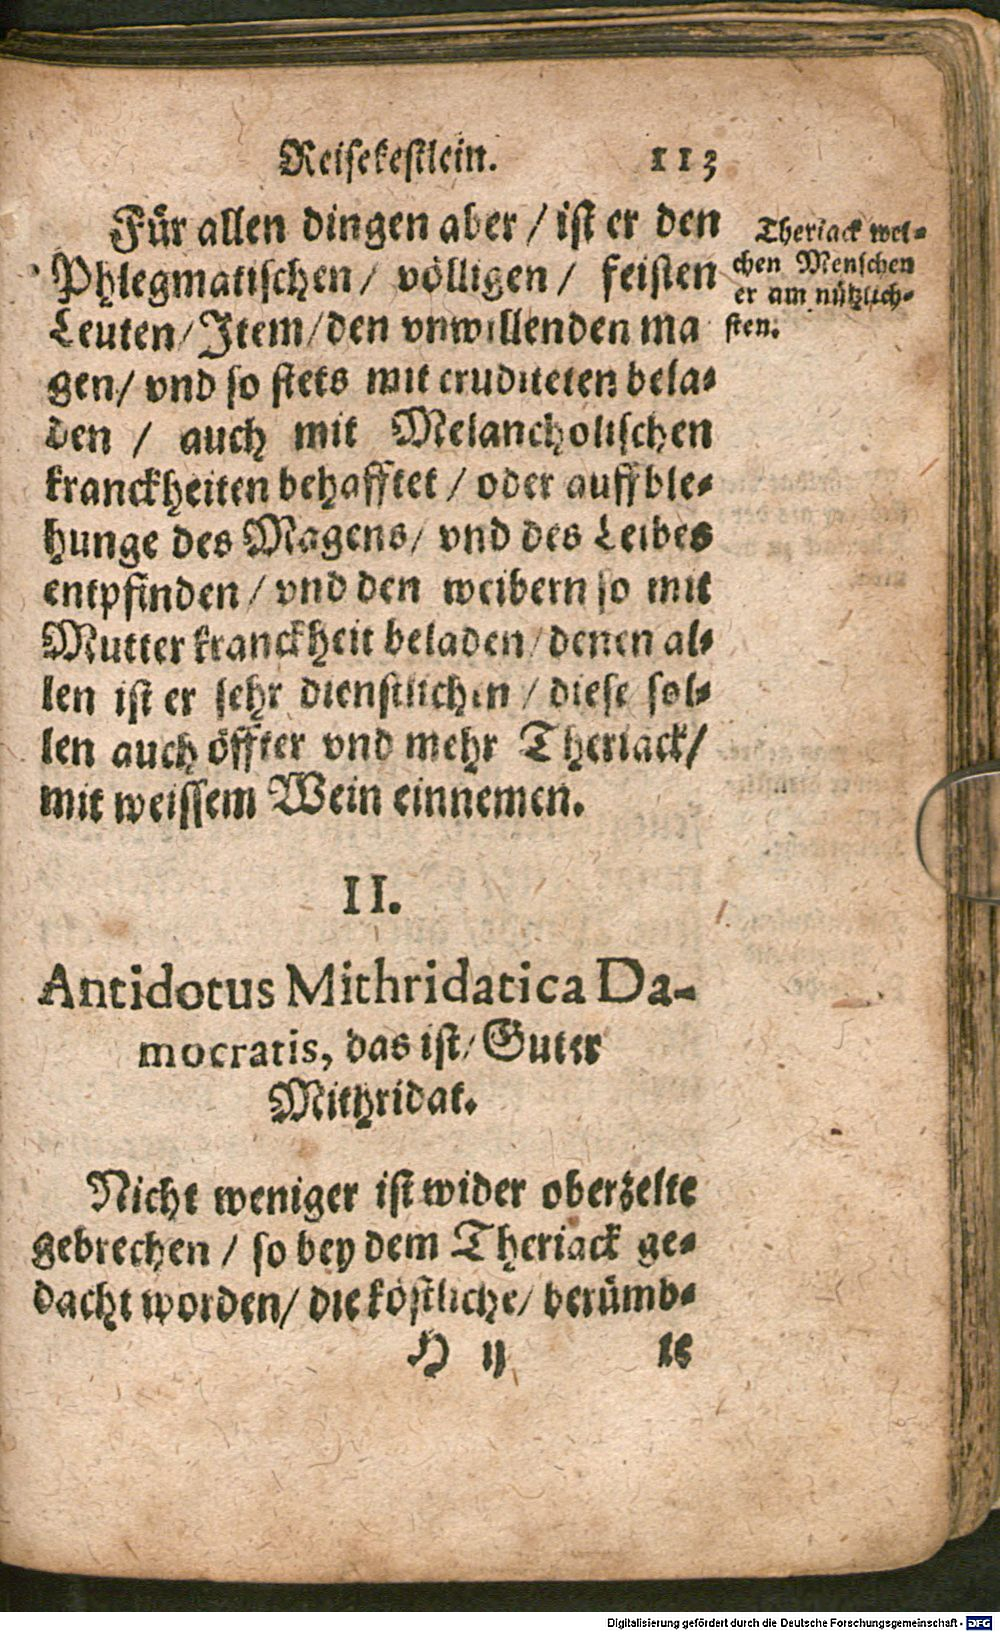 Reisekestlein. 113
Für allen dingen aber / ist er den
Phlegmatischen / völligen / feisten
Leuten / Item / den vnwillenden ma
gen / vnd so stets mit cruditeten bela-
den / auch mit Melancholischen
kranckheiten behafftet / oder auffble-
hunge des Magens / vnd des Leibes
entpfinden / vnd den weibern so mit
Mutter kranckheit beladen / denen al-
len ist er sehr dienstlichen / diese sol-
len auch öffter vnd mehr Theriack /
mit weissem Wein einnemen.
Theriack wel-
chen Menschen
er am nützlich-
sten.
II.
Antidotus Mithridatica Da-
mocratis, das ist / Guter
Mithridat.
Nicht weniger ist wider oberzelte
gebrechen / so bey dem Theriack ge-
dacht worden / die köstliche / berümb-
H ij te
Digitalisierung gefördert durch die Deutsche Forschungsgemeinschaft - DFG